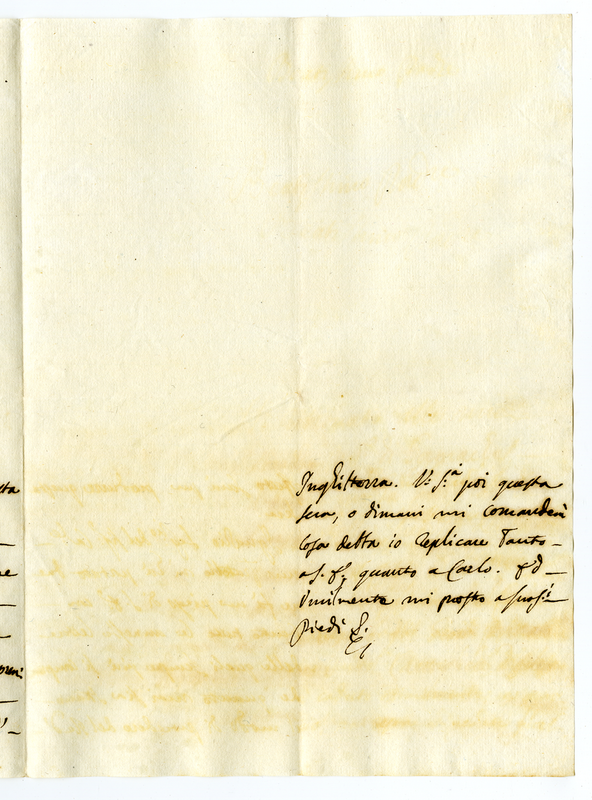 Inghilterra. V. S.ª poi questa
sera, o dimani mi comanderà
cosa debba io replicare tanto
a S. quanto a Carlo. ed
Umilmente mi prosto a suoi
Piedi